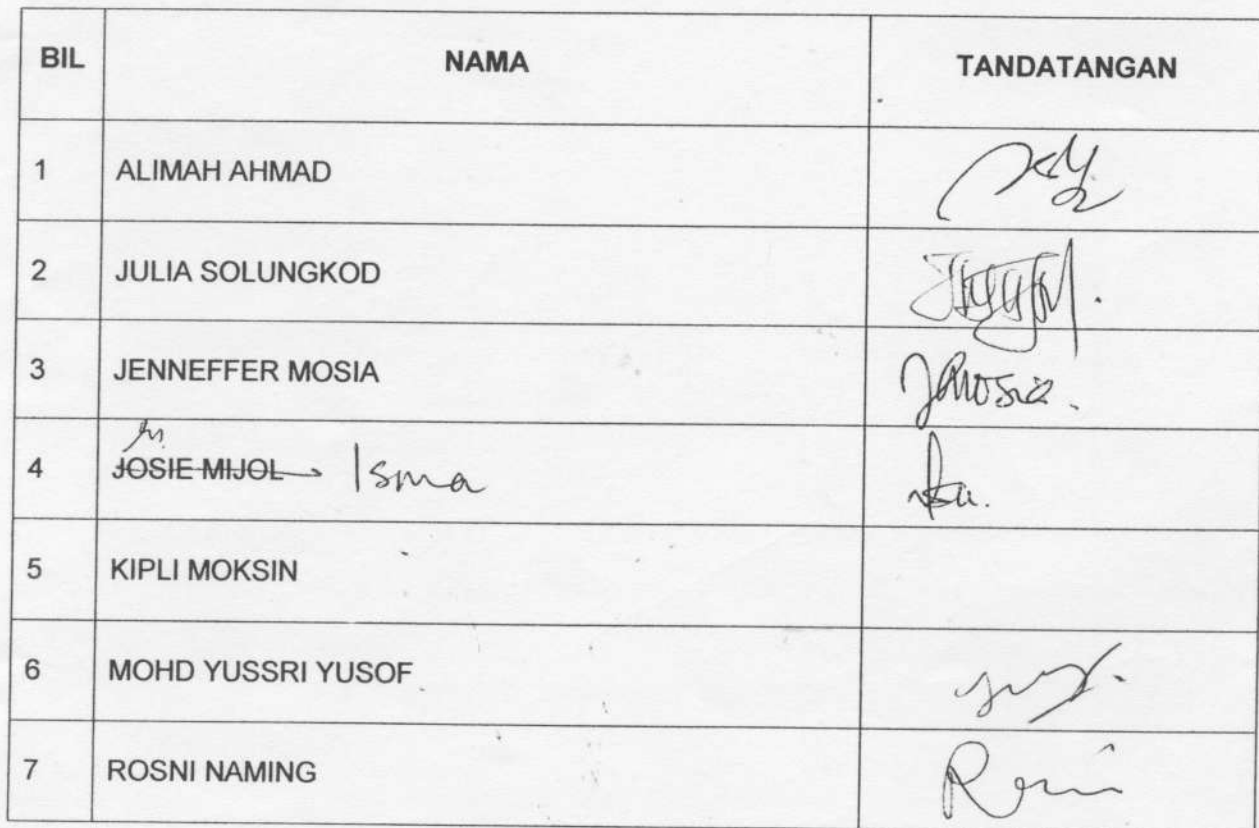 BIL NAMA TANDATANGAN
1 ALIMAH AHMAD
2 JULIA SOLUNGKOD
3 JENNEFFER MOSIA
4 JOSIE MIJOL Isma
5 KIPLI MOKSIN
6 MOHD YUSSRI YUSOF
7 ROSNI NAMING